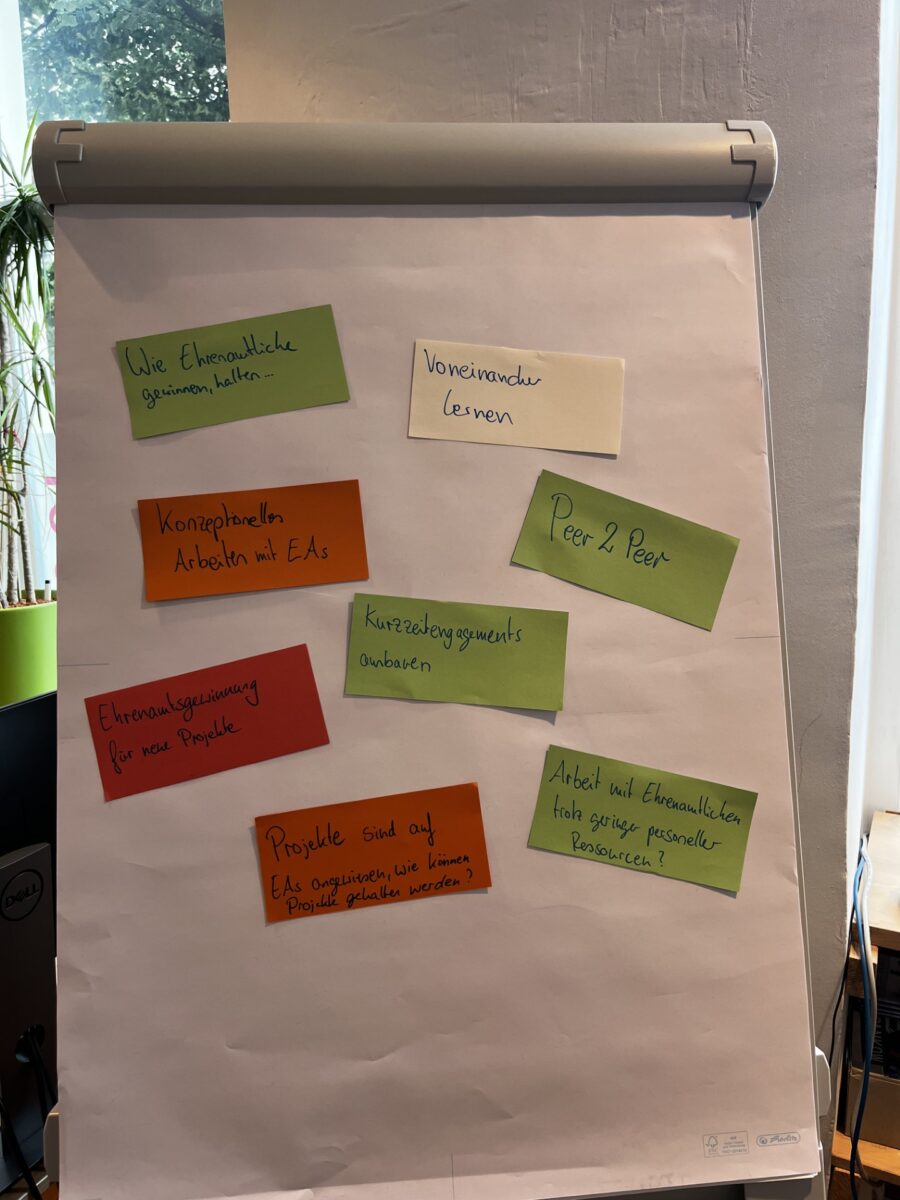 Wie Ehrenamtliche
gewinnen, halten...
Voneinander
lernen
Konzeptionelles
Arbeiten mit EAs
Peer 2 Peer
Kurzzeitengagements
ausbauen
Ehrenamtsgewinnung
für neue Projekte
Projekte sind auf
EAs angewiesen, wie können
Projekte gehalten werden?
Arbeit mit Ehrenamtlichen
trotz geringer personeller
Ressourcen?
DELL
FSC